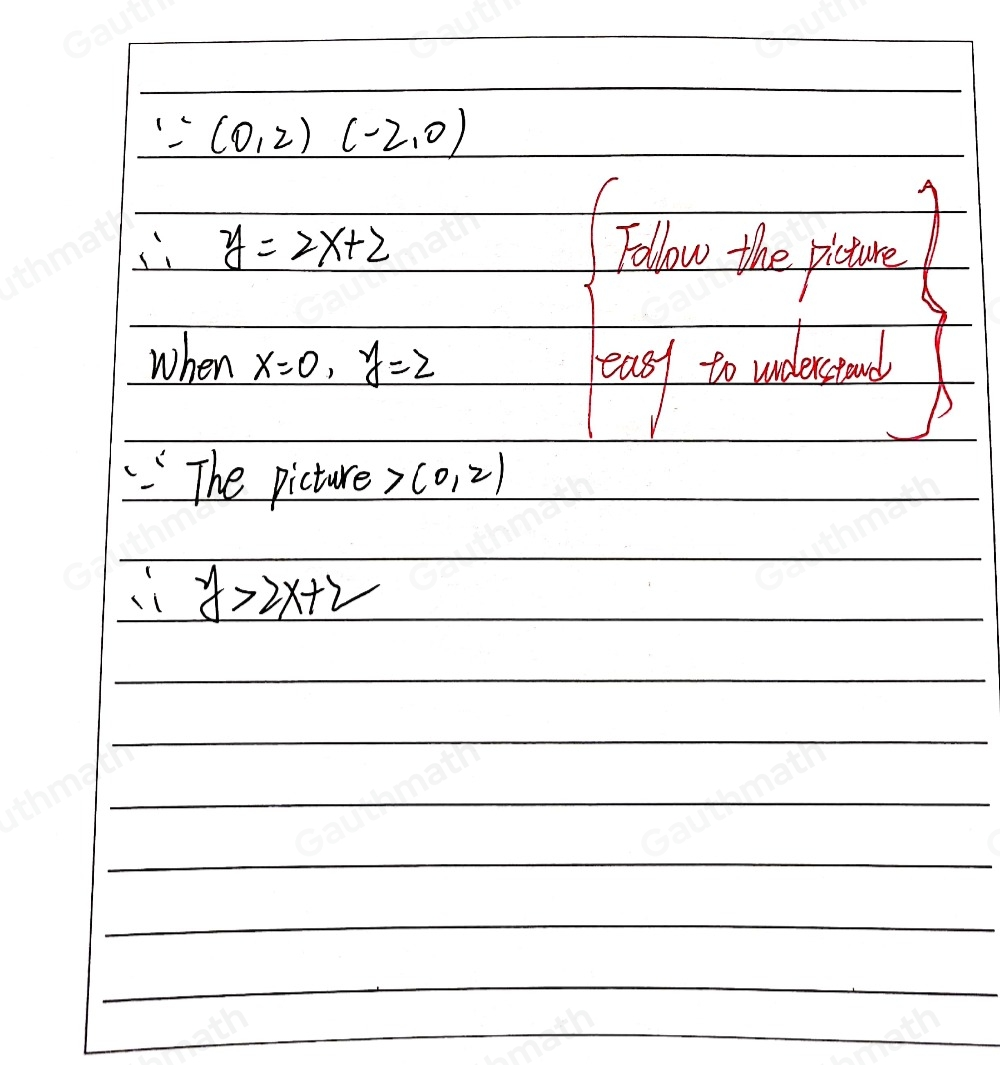 ∵ (0,2) (-2,0)
∴ y = 2x+2
When x=0, y=2
∵ The picture > (0,2)
∴ y>2x+2
Follow the picture
easy to understand
Gauthmath